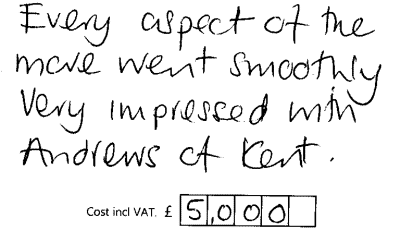 Every aspect of the
move went smoothly
Very impressed with
Andrews of Kent.
Cost incl VAT. £ 5,000